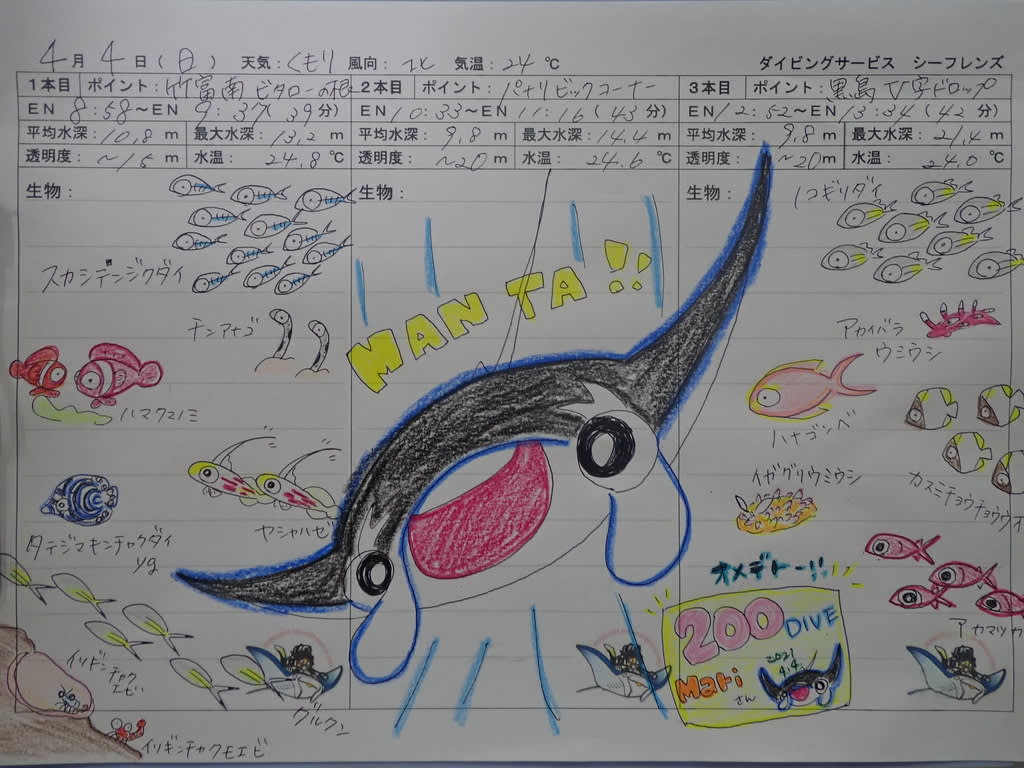 4月4日(日) 天気:くもり 風向:北 気温:24℃ ダイビングサービス シーフレンズ
1本目 ポイント:竹富南 ビタローの根 2本目 ポイント:パナリビックコーナー 3本目 ポイント:黒島V字ドロップ
EN 8:58~EN 9:37(39分) EN 10:33~EN 11:16(43分) EN 12:52~EN 13:34(42分)
平均水深:10,8m 最大水深:13,2m 平均水深:9,8m 最大水深:14,4m 平均水深:9,8m 最大水深:21,4m
透明度:~15m 水温:24,8℃ 透明度:~20m 水温:24.6℃ 透明度:~20m 水温:24.0℃
生物: 生物: 生物:
スカシテンジクダイ
チンアナゴ
ハマクマノミ
ヤシャハゼ
タテジマキンチャクダイ
yg
イソギンチャク
エビ
グルクン
イソギンチャクモエビ
MANTA!!
ノコギリダイ
アカイバラ
ウミウシ
ハナゴンベ
イガグリウミウシ
カスミチョウチョウウオ
アカマツカ
オメデトー!!
200
DIVE
2021
4.4
Mari
さん